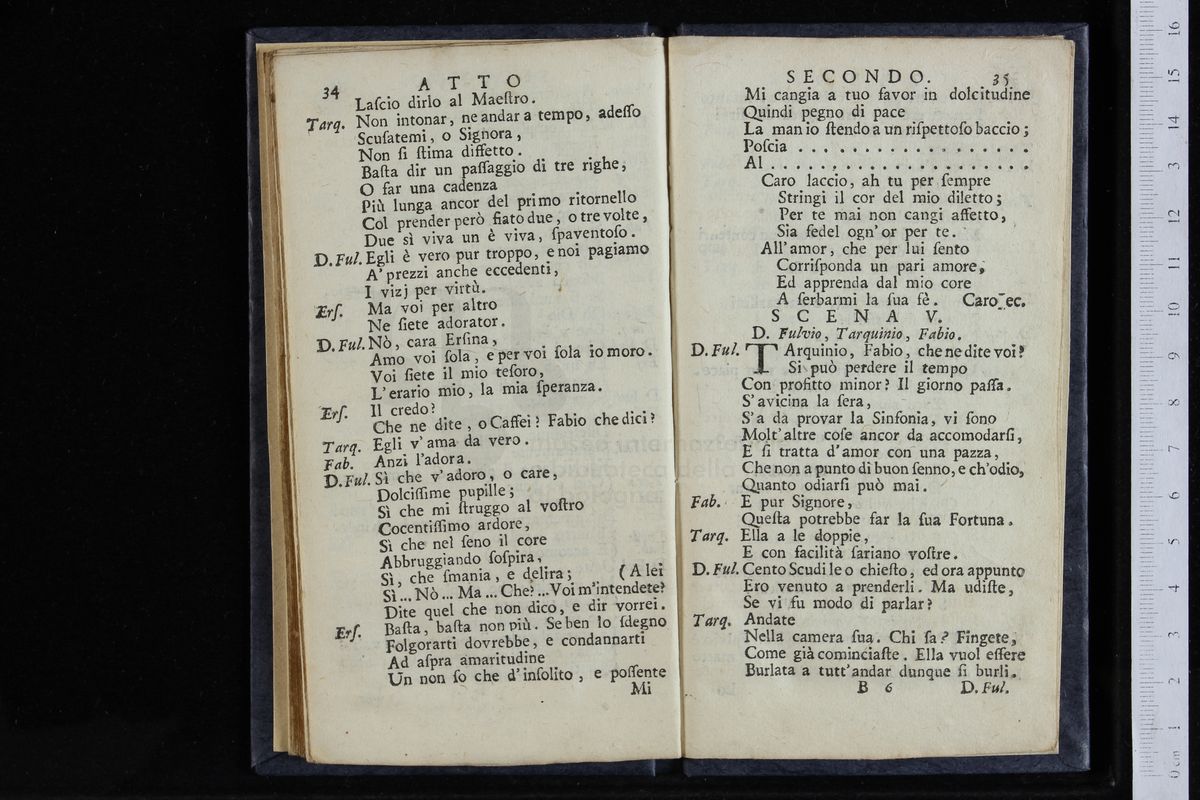 34 ATTO
Laſcio dirlo al Maeſtro.
Tarq. Non intonar, ne andar a tempo, adeſſo
Scuſatemi, o Signora,
Non ſi ſtima diffetto.
Baſta dir un paſſaggio di tre righe,
O far una cadenza
Più lunga ancor del primo ritornello
Col prender però fiato due, o tre volte,
Due sì viva un è viva, ſpaventoſo.
D. Ful. Egli è vero pur troppo, e noi pagiamo
A' prezzi anche eccedenti,
I vizj per virtù.
Erſ. Ma voi per altro
Ne ſiete adorator.
D. Ful. Nò, cara Erſina,
Amo voi ſola, e per voi ſola io moro.
Voi ſiete il mio teſoro,
L'erario mio, la mia ſperanza.
Erſ. Il credo?
Che ne dite, o Caffei? Fabio che dici?
Tarq. Egli v'ama da vero.
Fab. Anzi l'adora.
D. Ful. Sì che v'adoro, o care,
Dolciſſime pupille;
Sì che mi ſtruggo al voſtro
Cocentiſſimo ardore,
Sì che nel ſeno il core
Abbruggiando ſoſpira,
Sì, che ſmania, e delira; (A lei
Sì... Nò... Ma... Che?... Voi m'intendete?
Dite quel che non dico, e dir vorrei.
Erſ. Baſta, baſta non più. Se ben lo ſdegno
Folgorarti dovrebbe, e condannarti
Ad aſpra amaritudine
Un non ſo che d'inſolito, e poſſente
Mi
SECONDO. 35
Mi cangia a tuo favor in dolcitudine
Quindi pegno di pace
La man io ſtendo a un riſpettoſo baccio;
Poſcia . . . . . . . . . . . . . . . . . .
Al . . . . . . . . . . . . . . . . . . . .
Caro laccio, ah tu per ſempre
Stringi il cor del mio diletto;
Per te mai non cangi affetto,
Sia fedel ogn'or per te.
All'amor, che per lui ſento
Corriſponda un pari amore,
Ed apprenda dal mio core
A ſerbarmi la ſua fè. Caro, ec.
SCENA V.
D. Fulvio, Tarquinio, Fabio.
D. Ful. TArquinio, Fabio, che ne dite voi?
Si può perdere il tempo
Con profitto minor? Il giorno paſſa.
S'avicina la ſera,
S'a da provar la Sinfonia, vi ſono
Molt'altre coſe ancor da accomodarſi,
E ſi tratta d'amor con una pazza,
Che non a punto di buon ſenno, e ch'odio,
Quanto odiarſi può mai.
Fab. E pur Signore,
Queſta potrebbe far la ſua Fortuna.
Tarq. Ella a le doppie,
E con facilità ſariano voſtre.
D. Ful. Cento Scudi le o chieſto, ed ora appunto
Ero venuto a prenderli. Ma udiſte,
Se vi fu modo di parlar?
Tarq. Andate
Nella camera ſua. Chi ſa? Fingete,
Come già cominciaſte. Ella vuol eſſere
Burlata a tutt'andar dunque ſi burli.
B 6 D. Ful.
0 cm 1 2 3 4 5 6 7 8 9 10 11 12 13 14 15 16